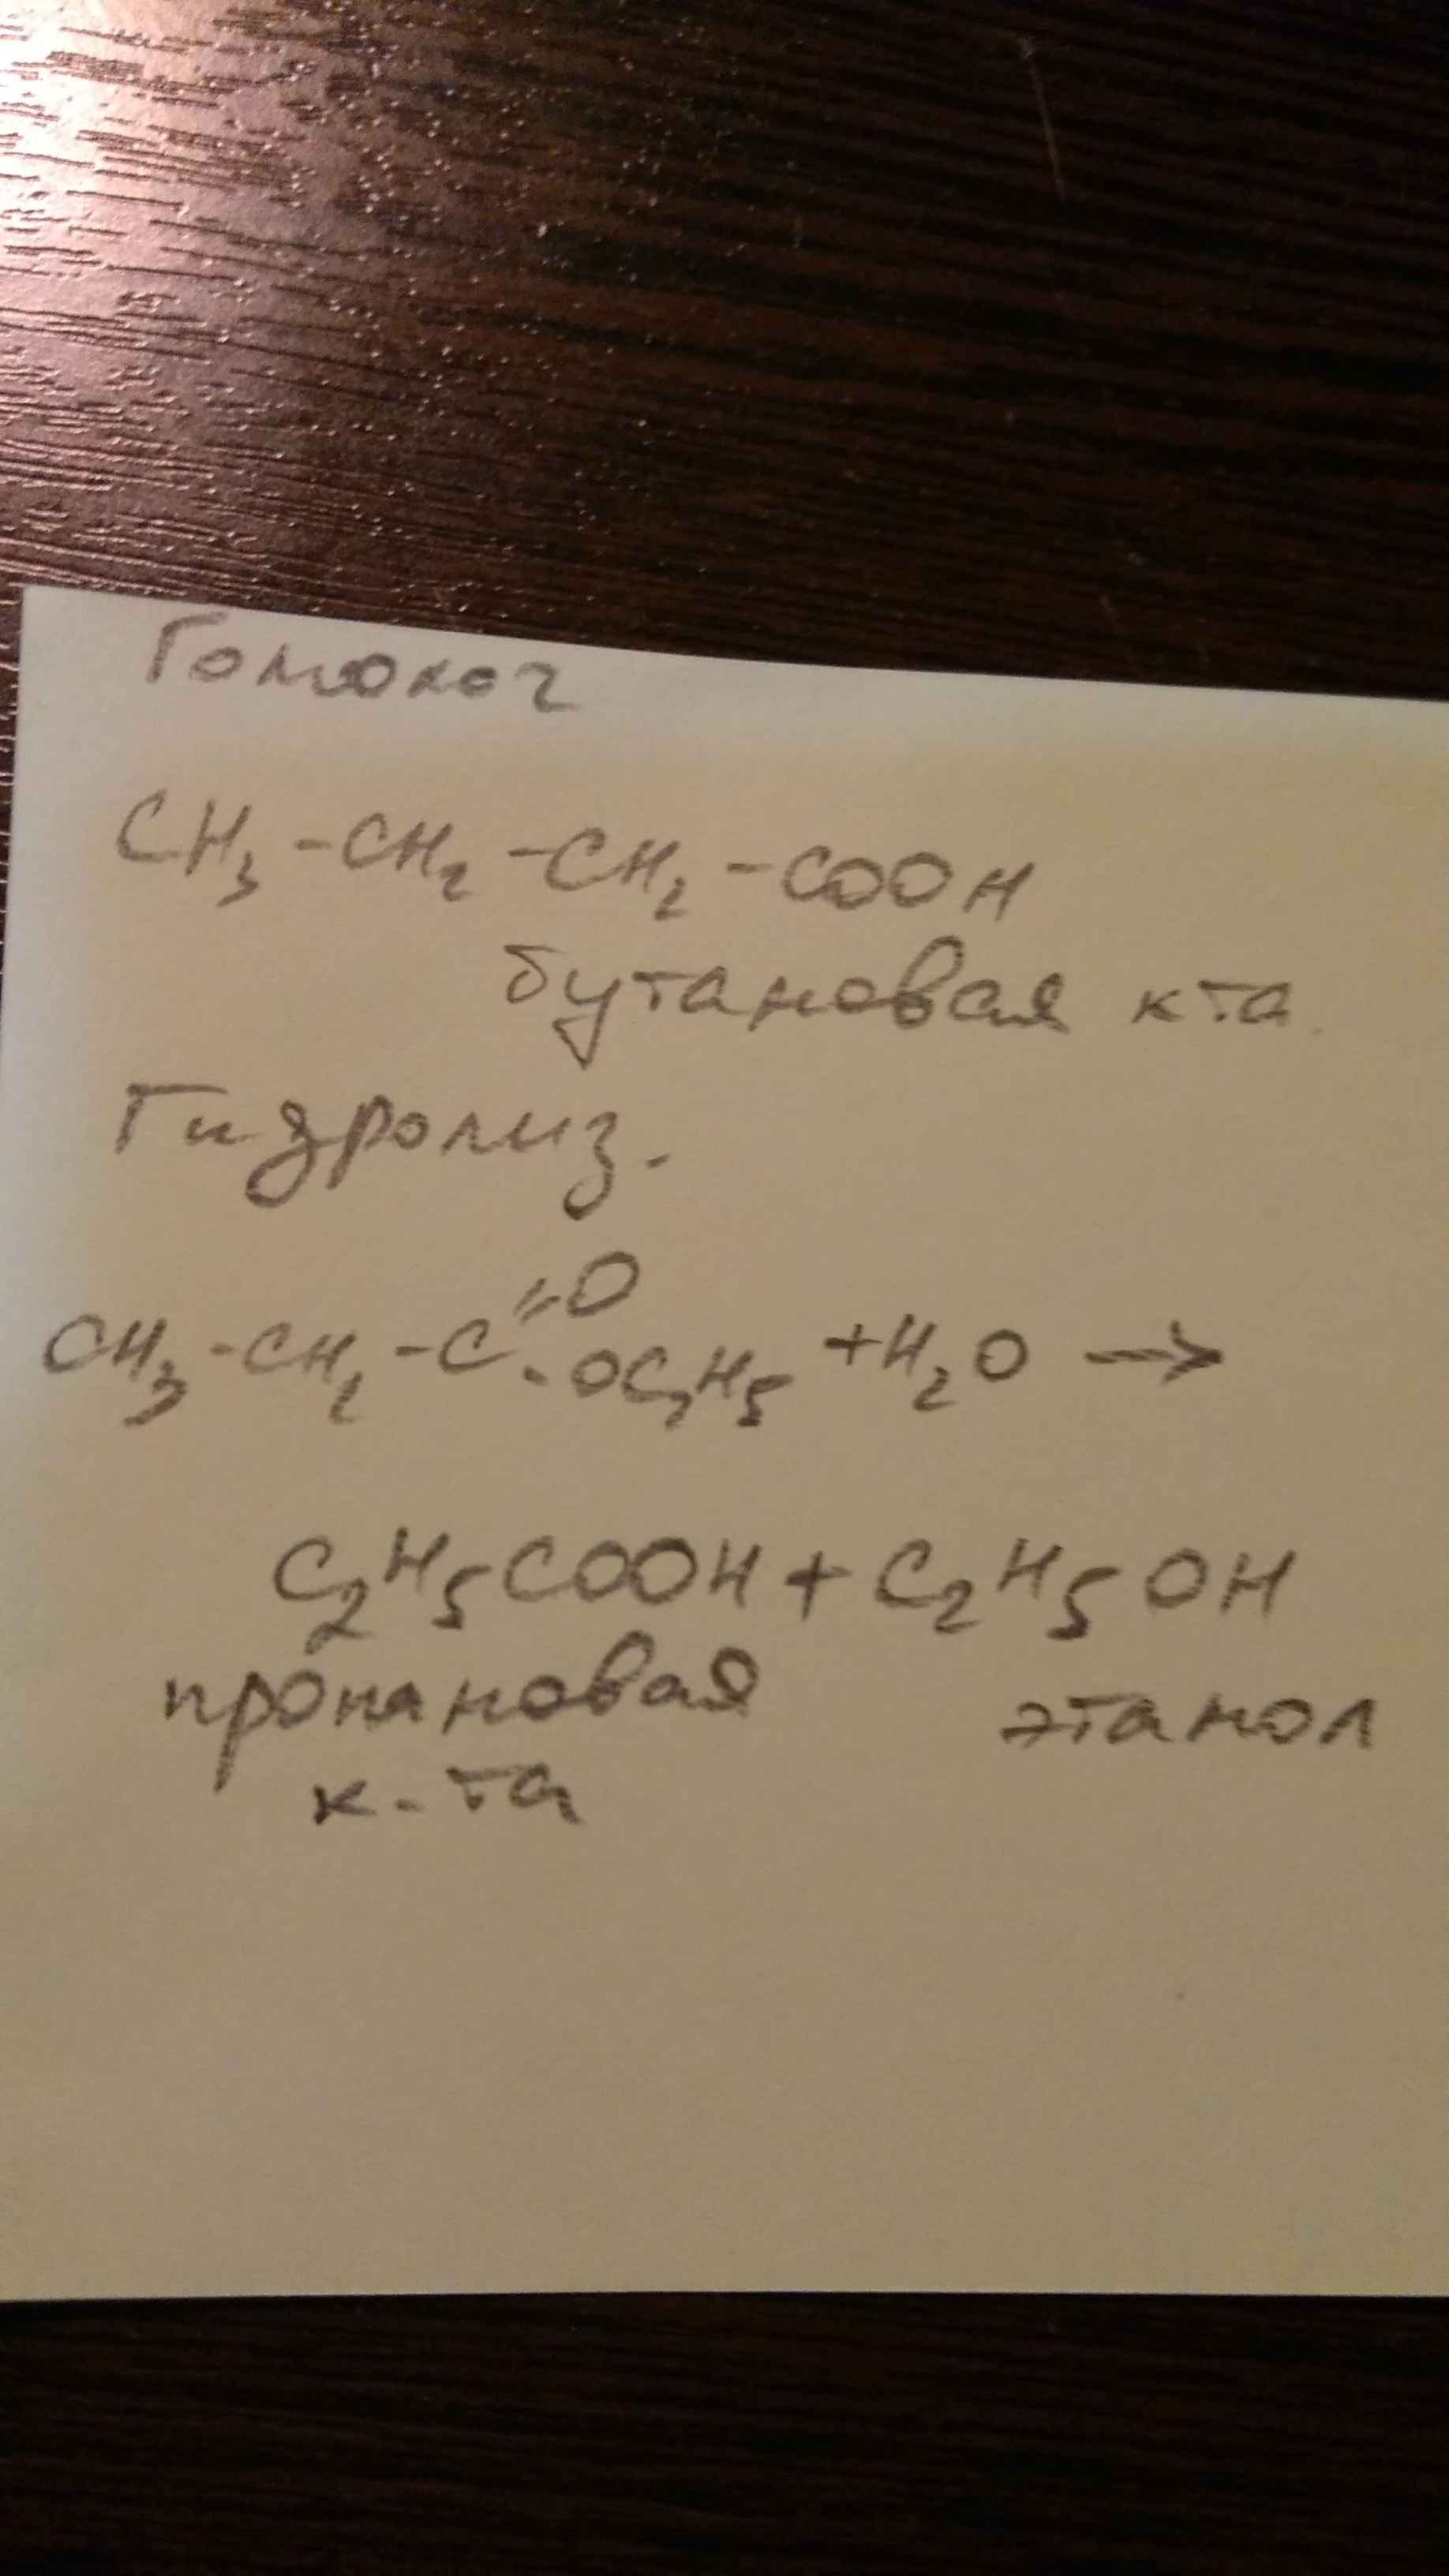 Гомолог
CH₃-CH₂-CH₂-COOH
бутановая к та
Гидролиз.
CH₃-CH₂-C=O
-OC₂H₅ +H₂O →
C₂H₅COOH + C₂H₅OH
пропановая этанол
к-та